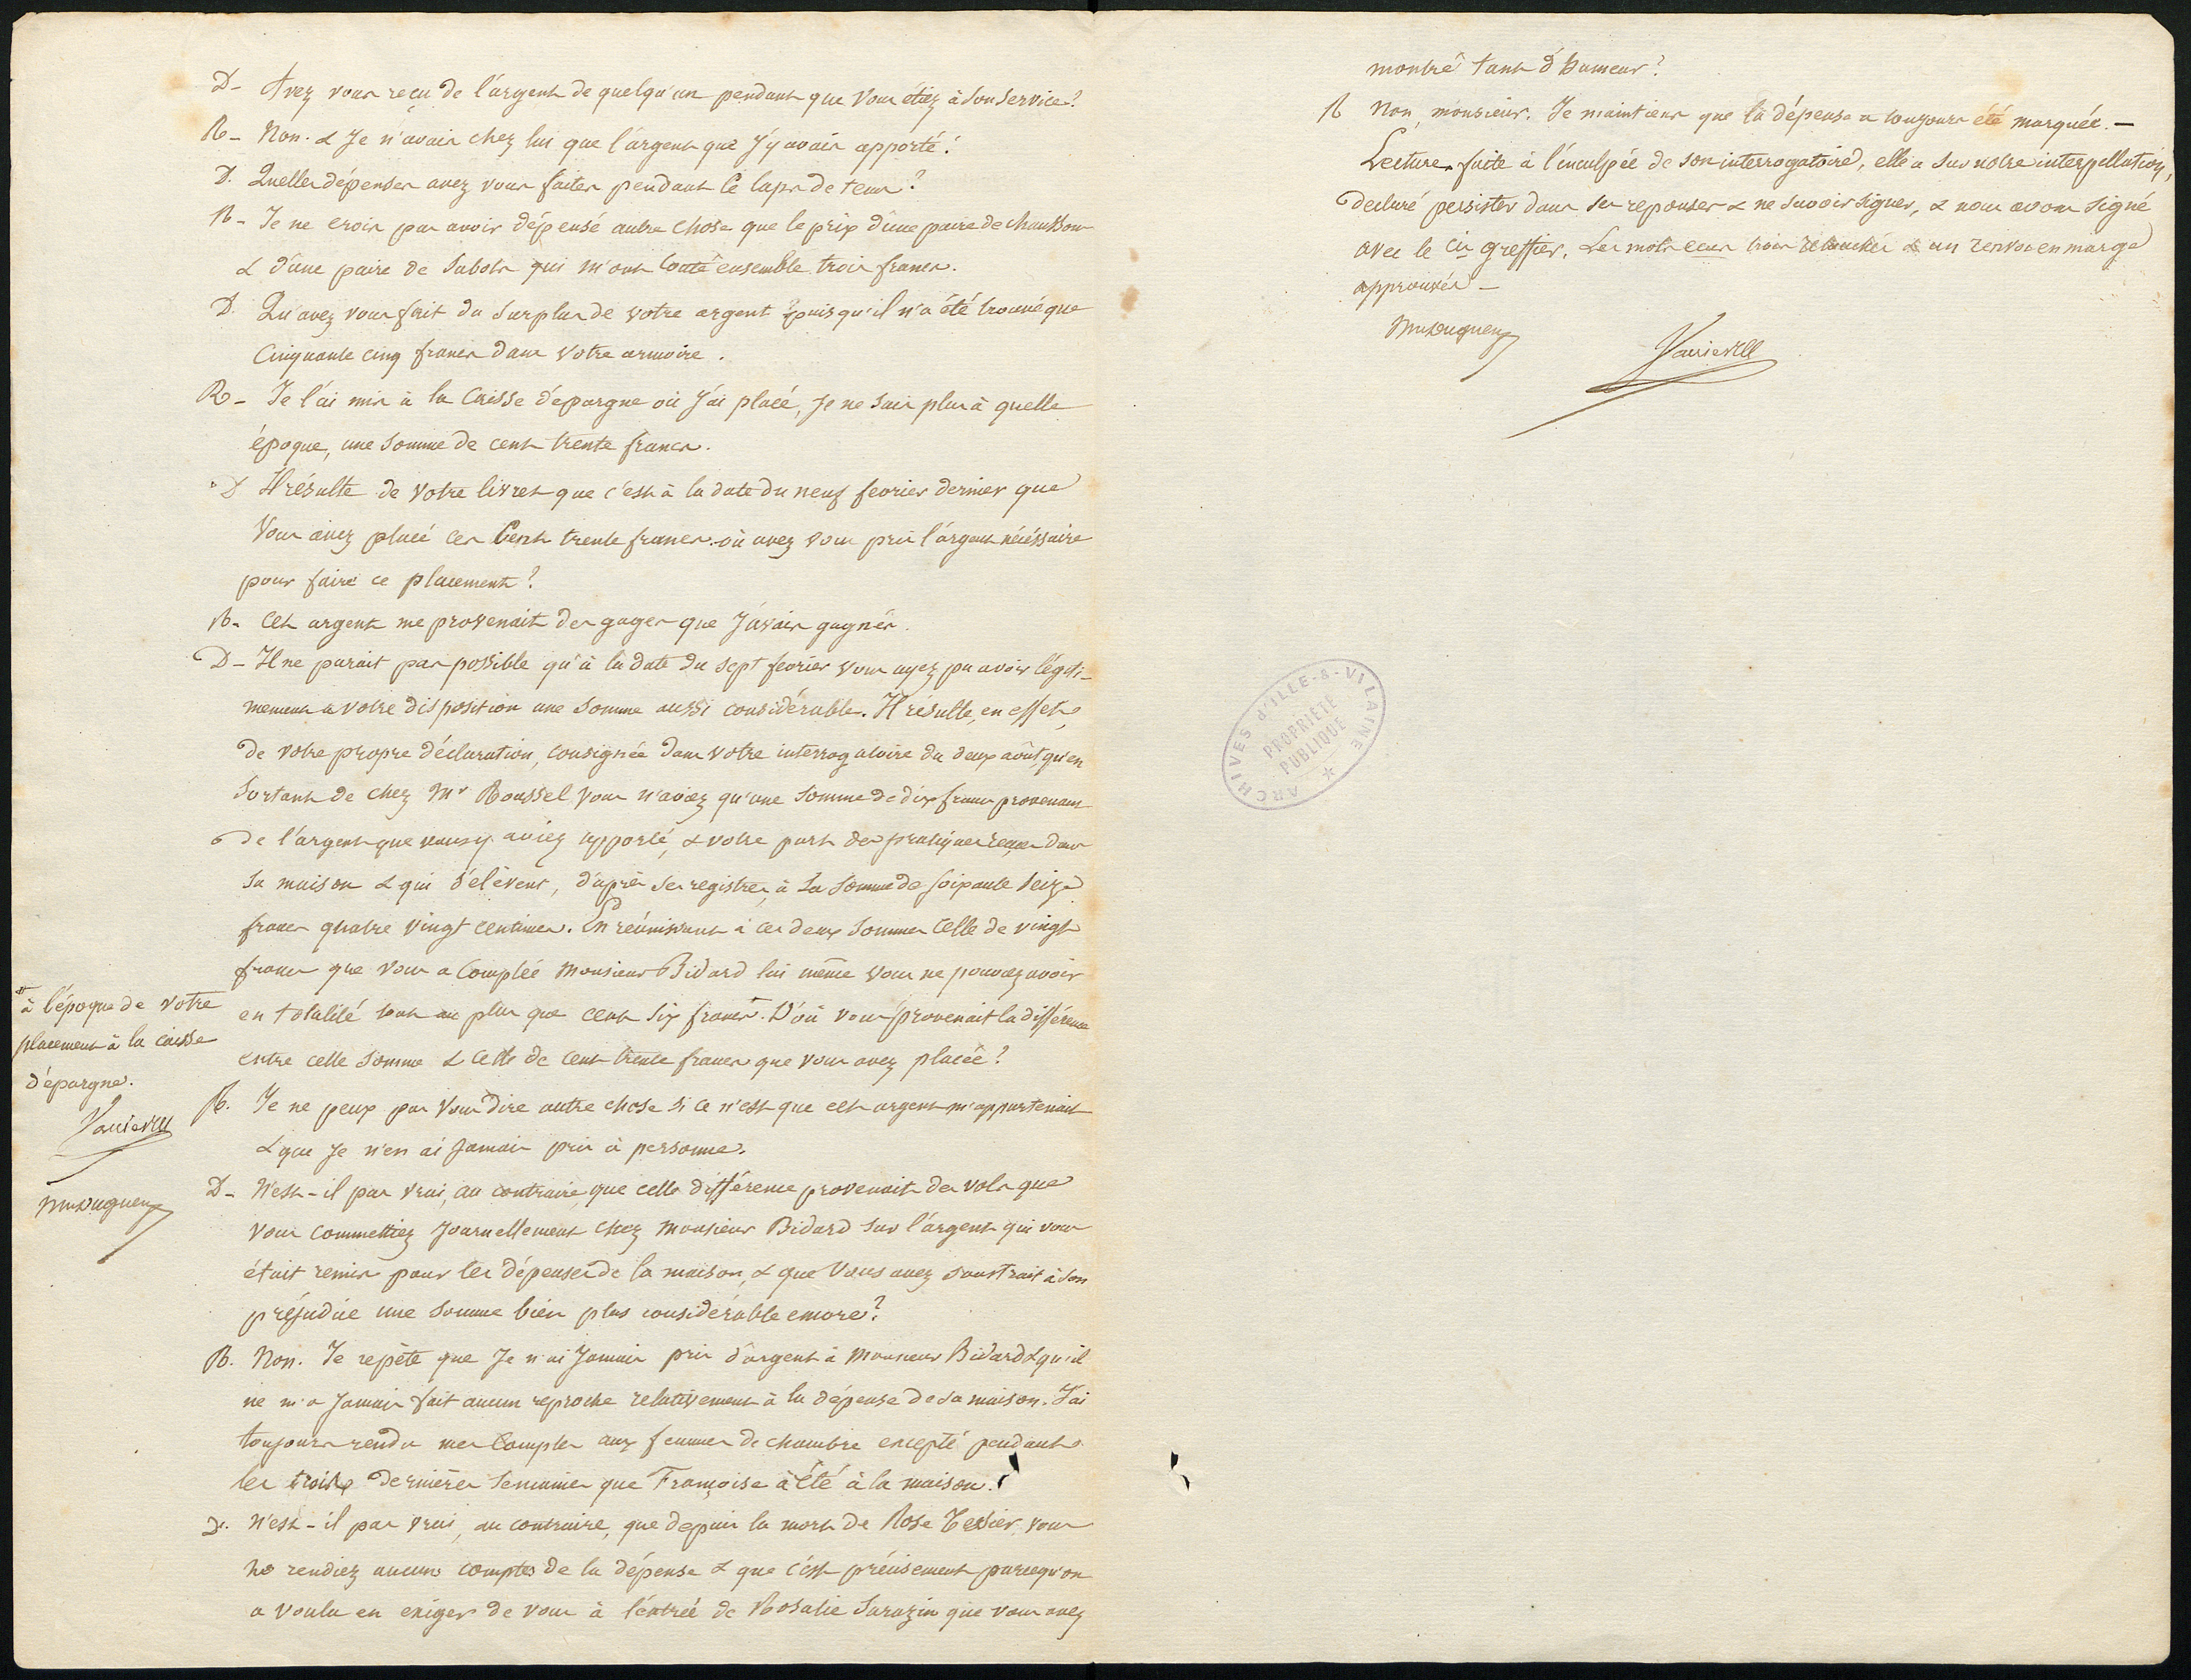 D- Avez vous reçu de l'argent de quelqu'un pendant que vous etiez à son service?
R- Non. & Je n'avais chez lui que l'argent que j'y avais apporté.
D. Quelles dépenses avez vous faites pendant ce laps de tems?
R- Je ne crois pas avoir dépensé autre chose que le prix d'une paire de chaussons
& d'une paire de sabots qui m'ont couté ensemble trois francs.
D. Qu'avez vous fait du surplus de votre argent puisqu'il n'a été trouvé que
cinquante cinq francs dans votre armoire.
R- Je l'ai mis à la Caisse d'épargne où j'ai placé, je ne sais plus à quelle
époque, une somme de cent trente francs.
D Il résulte de votre livret que c'est à la date du neuf fevrier dernier que
vous avez placé ces cent trente francs. où avez vous pris l'argent nécéssaire
pour faire ce placement?
R- Cet argent me provenait des gages que j'avais gagnés.
D- Il ne parait pas possible qu'à la date du sept fevrier vous ayez pu avoir légiti-
mement à votre disposition une somme aussi considérable. Il résulte, en effet,
de votre propre déclaration, consignée dans votre interrogatoire du deux août, qu'en
sortant de chez Mr Roussel vous n'aviez qu'une somme de dix francs provenant
de l'argent que vous y aviez apporté, & votre part des pratiques reçues dans
sa maison & qui s'elèvent, d'après ses registres, à la somme de soixante seize
francs quatre vingt centimes. En réunissant à ces deux sommes celle de vingt
francs que vous a comptée Monsieur Bidard lui même vous ne pouviez avoir
en totalité tout au plus que cent six francs. D'où vous provenait la différence
entre cette somme & celle de cent trente francs que vous avez placée?
* à l'époque de votre
placement à la caisse
d'épargne.
R. Je ne peux pas vous dire autre chose si ce n'est que cet argent m'appartenait
& que je n'en ai jamais pris à personne.
D- N'est-il pas vrai, au contraire, que cette différence provenait des vols que
vous commettiez journellement chez Monsieur Bidard sur l'argent qui vous
était remis pour les dépenses de la maison, & que vous avez soustrait à son
préjudice une somme bien plus considérable encore?
R. Non. Je repète que je n'ai jamais pris d'argent à Monsieur Bidard & qu'il
ne m'a jamais fait aucun reproche relativement à la dépense de sa maison. J'ai
toujours rendu mes comptes aux femmes de chambre excepté pendant
les trois dernières semaines que Françoise à été à la maison.
D. N'est-il pas vrai, au contraire, que depuis la mort de Rose Tessier, vous
ne rendiez aucuns comptes de la dépense & que c'est précisement parcequ'on
a voulu en exiger de vous à l'entrée de Rosalie Sarazin que vous avez
montré tant d'humeur?
R Non, monsieur. Je maintiens que la dépense a toujours été marquée. —
Lecture faite à l'inculpée de son interrogatoire, elle a sur notre interpellation,
declaré persister dans ses reponses & ne savoir signer, & nous avons signé
avec le cis greffier. Les mots trois retouchés & un renvoi en marge
approuvés —
ARCHIVES D'ILLE-&-VILAINE
PROPRIÉTÉ
PUBLIQUE